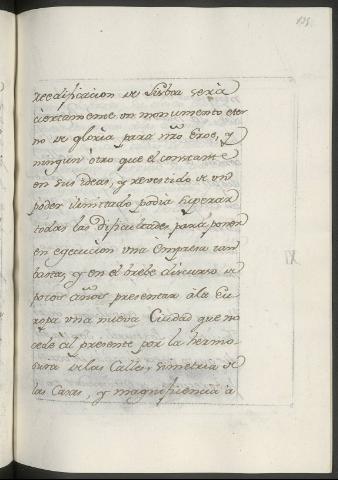 Reedificacion de Lisboa seria
ciertamente un monumento eter
no de gloria para nr̃o Eroe, y
ningun otro que él constante
en sus ideas, y revestido de un
poder ilimitado podia superar
todas las Dificultades para poner
en egecucion una Empresa tan
basta, y en el brebe discurso de
pocos años presentar á la Eu
ropa una nueva Ciudad que no
cede al presente por la hermo
sura de las Calles, simetria de
las Casas, y magnificencia à
IX